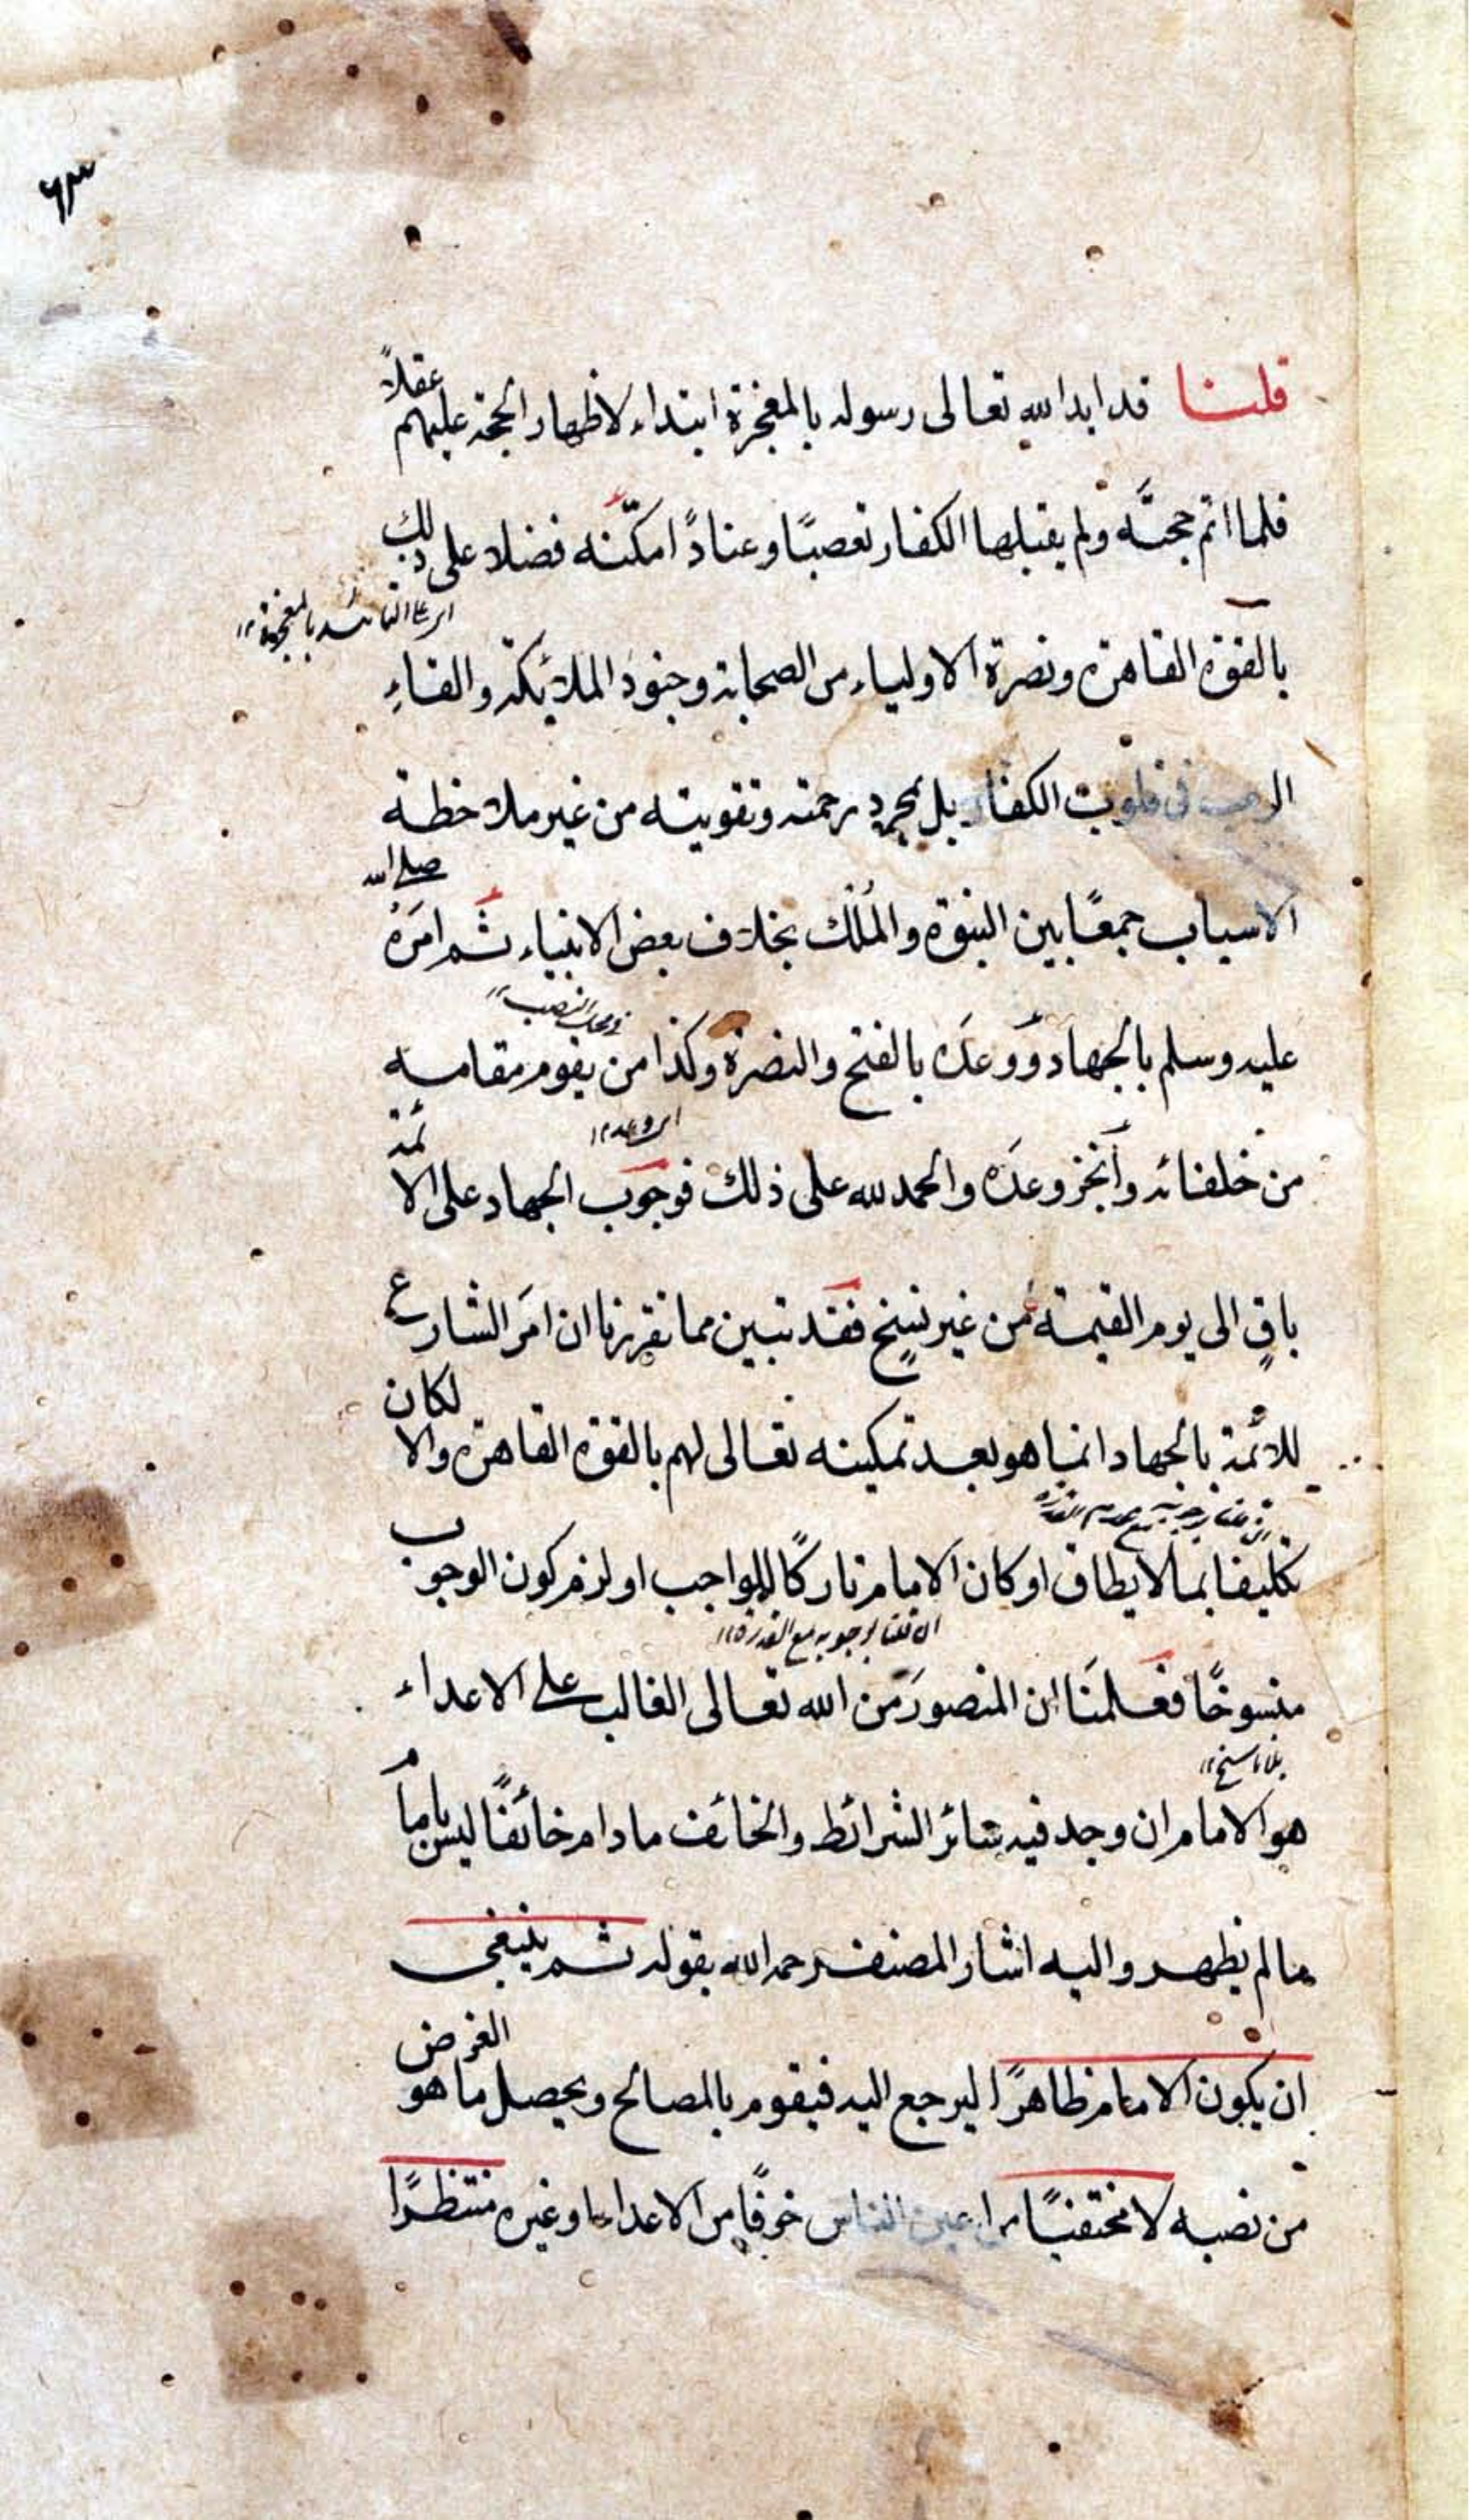 ٦٣
قلنا قد ايد الله تعالى رسوله بالمعجزة ابتداء لاظهار الحجة عليهم عقلاً
فلما اتم حجتَه ولم يقبلها الكفار تعصبًا وعنادًا مكّنه فضلا على ذلك
اى على التائيد بالمعجزة ١٢
بالقوة القاهرة ونصرة الاولياء من الصحابة وجنود الملائكة والقاءِ
الرعب فى قلوب الكفار بل بمجرد رحمته وتقويته من غير ملاحظة
الاسباب جمعًا بين النبوة والمُلك بخلاف بعض الانبياء ثم امَرَهُ صلى الله
عليه وسلم بالجهاد ووعدَه بالفتح والنصرة وكذا من يقوم مقامه
من خلفائه وانجز وعدَه والحمد لله على ذلك فوجوب الجهاد على الائمة
اى وعده ١٢
باقٍ الى يوم القيمة من غير نسخٍ فقد تبين مما قررنا ان امَر الشارع
للائمة بالجهاد انما هو بعد تمكينه تعالى لهم بالقوة القاهرة والا لكان
تكليفا بما لا يطاق او كان الامام تاركًا للواجب او لزم كون الوجوب
ان قلنا بوجوبه مع عدم القدرة
منسوخًا فعلمنَا ان المنصورَ من الله تعالى الغالب على الاعداء
ان قلنا بوجوبه مع القدرة ١٢
بلا ناسخ ١٢
هو الامام ان وجد فيه سائر الشرائط والخائف ما دام خائفًا ليس باماماً
ما لم يظهر واليه اشار المصنف رحمه الله بقوله ثم ينبغى
ان يكون الامام ظاهرًا ليرجع اليه فيقوم بالمصالح ويحصل ما هو الغرض
من نصبه لا مختفيًا من اعين الناس خوفًا من الاعداء او غيره منتظرًا